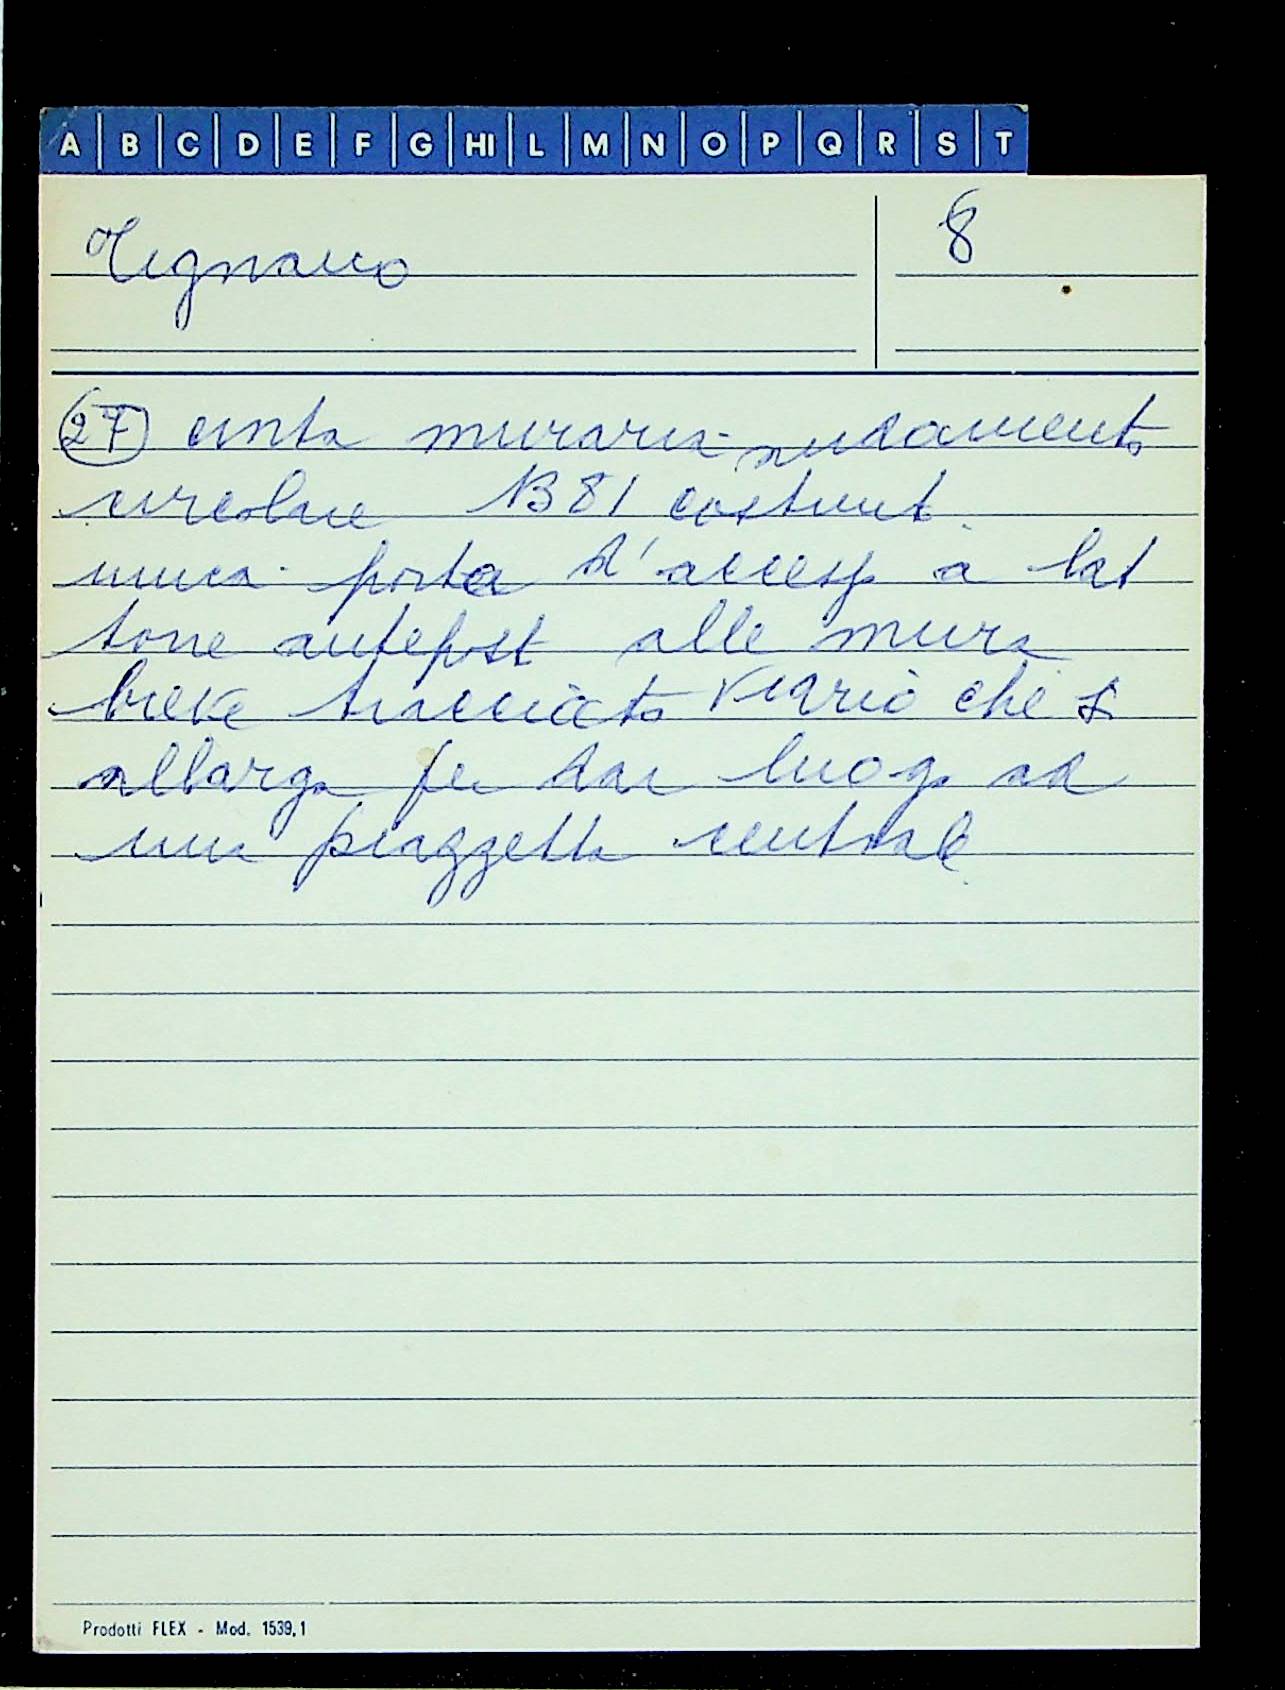 A B C D E F G HI L M N O P Q R S T
Tignano 8
(27) cinta muraria andamento
circolare N B 81 costruut.
unica porta d'access a lat
torre antepost alle mura
breve tracciato viario che s
allarga per dar luogo ad
una piazzetta centrale
Prodotti FLEX - Mod. 1539,1